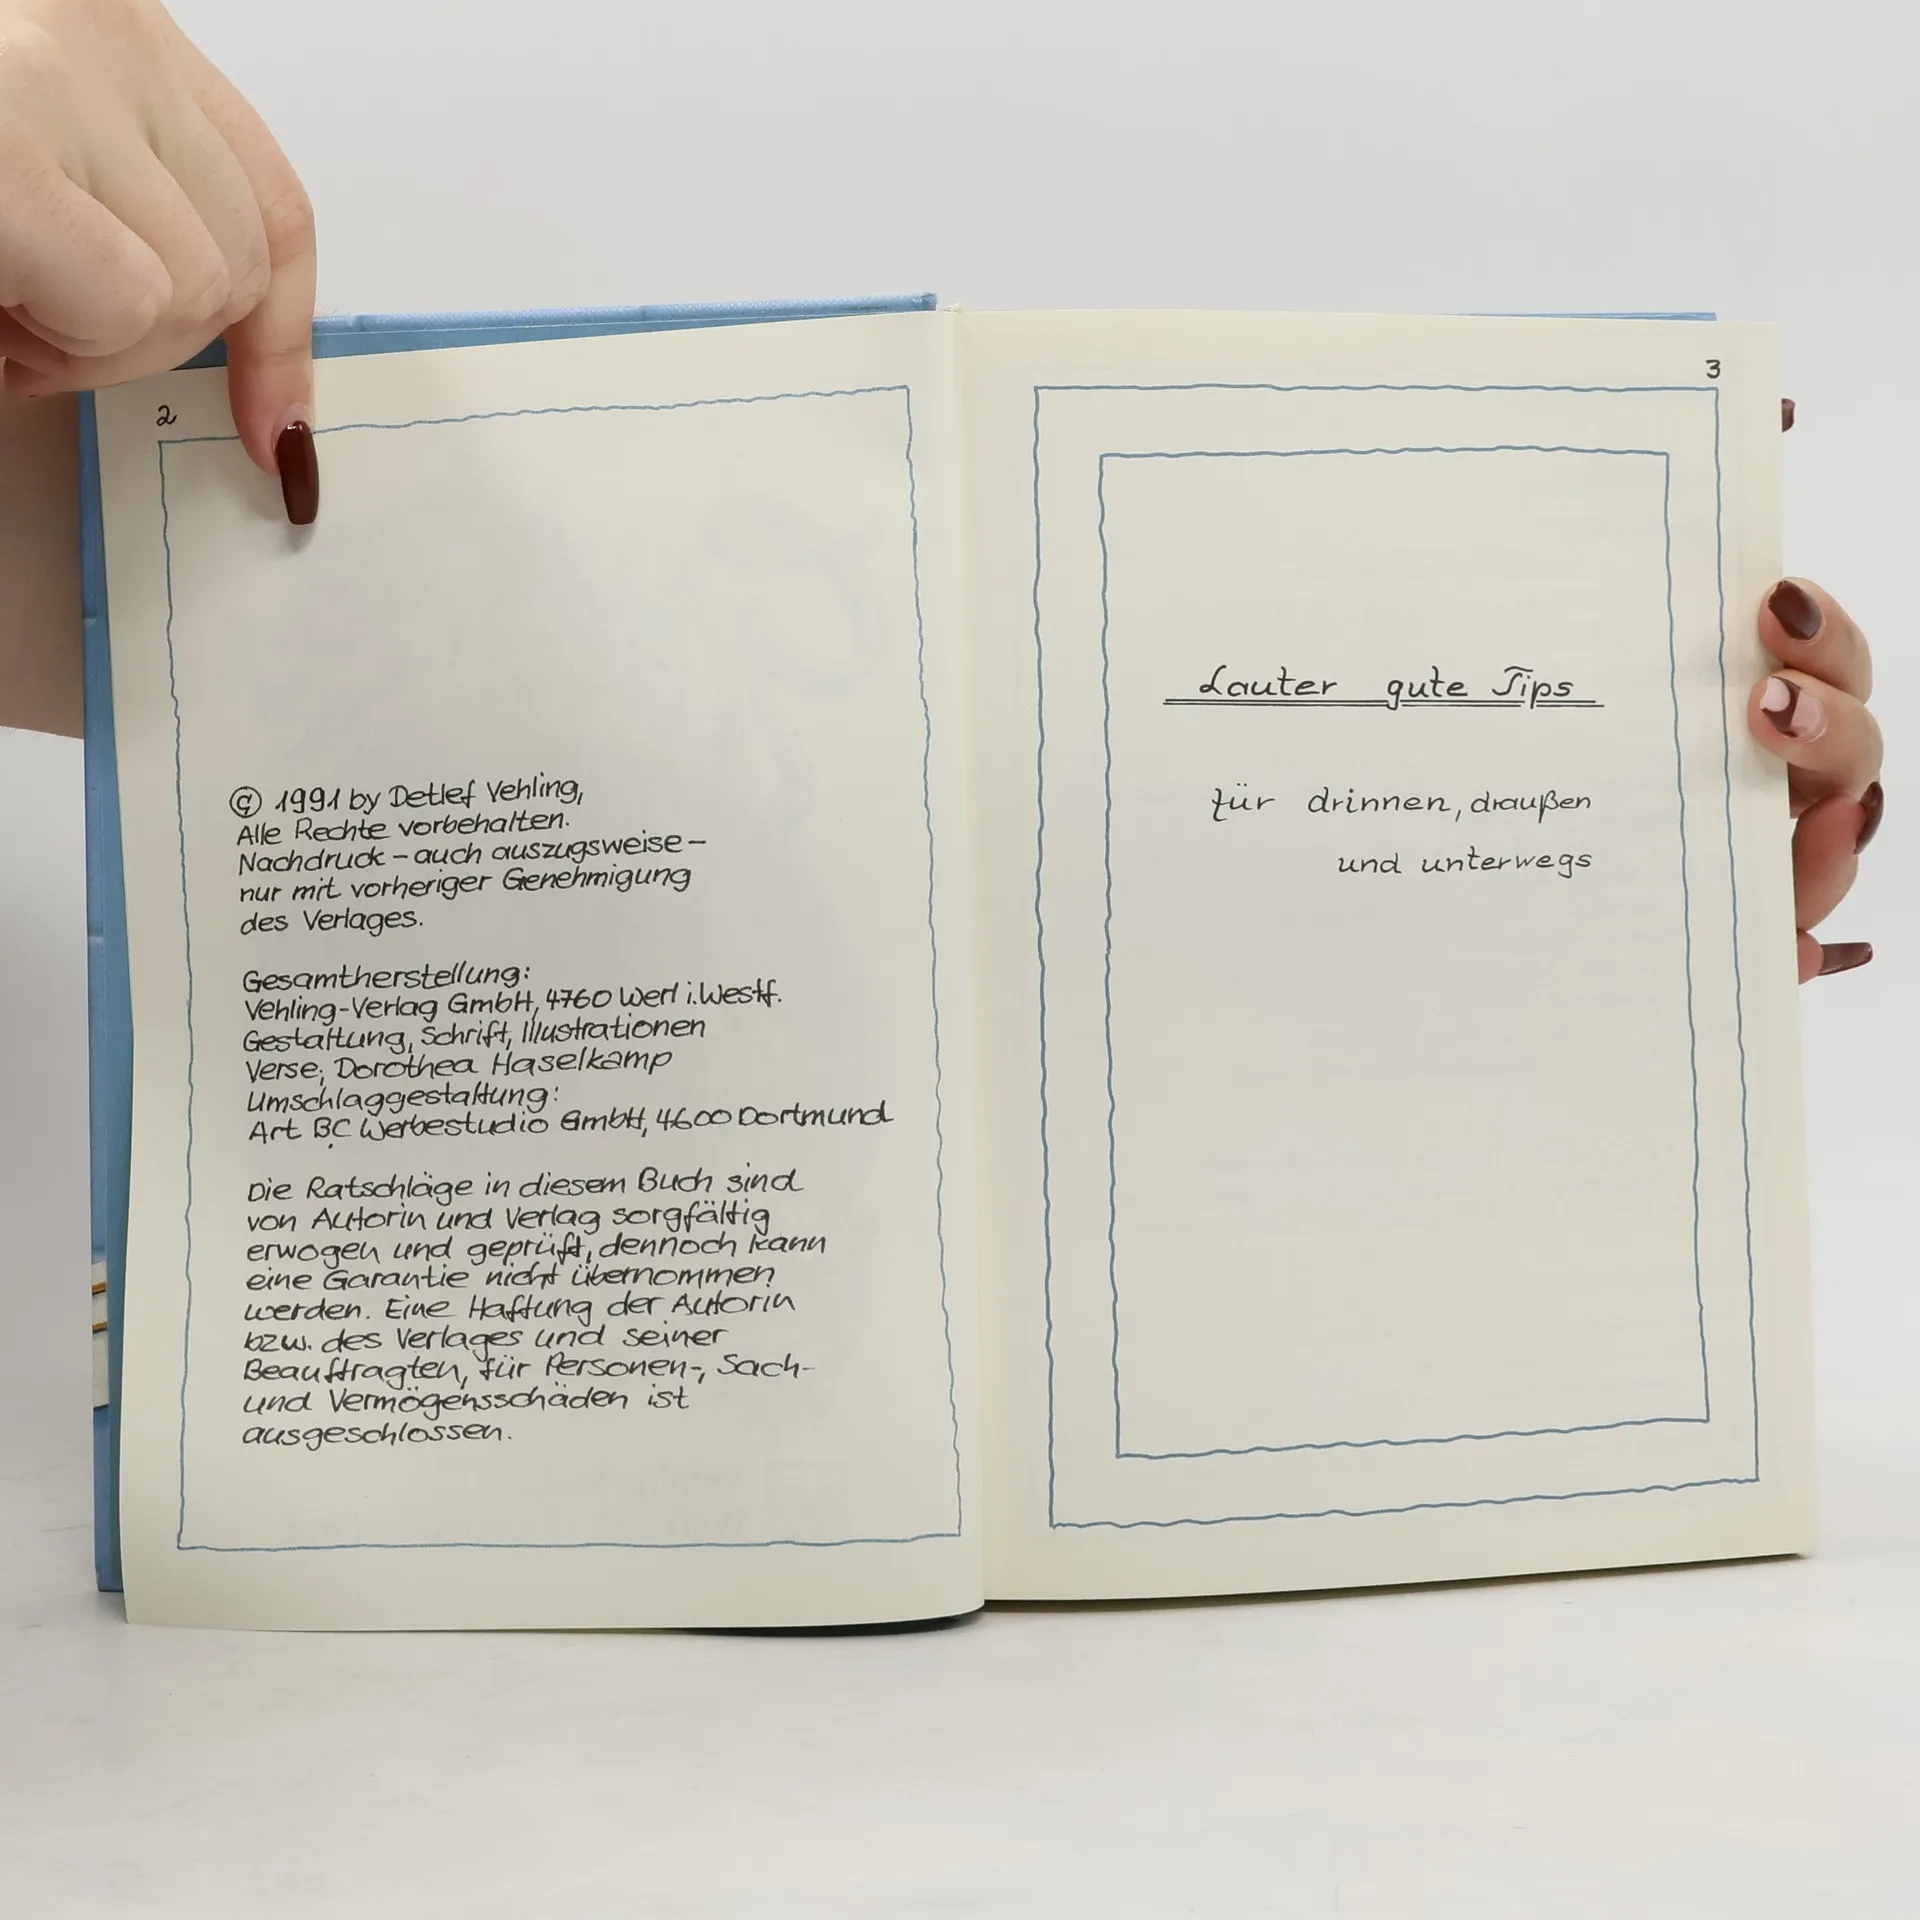 2
© 1991 by Detlef Vehling,
Alle Rechte vorbehalten.
Nachdruck – auch auszugsweise –
nur mit vorheriger Genehmigung
des Verlages.
Gesamtherstellung:
Vehling-Verlag GmbH, 4760 Werl i. Westf.
Gestaltung, Schrift, Illustrationen
Verse; Dorothea Haselkamp
Umschlaggestaltung:
Art BC Werbestudio GmbH, 4600 Dortmund
Die Ratschläge in diesem Buch sind
von Autorin und Verlag sorgfältig
erwogen und geprüft, dennoch kann
eine Garantie nicht übernommen
werden. Eine Haftung der Autorin
bzw. des Verlages und seiner
Beauftragten, für Personen-, Sach-
und Vermögensschäden ist
ausgeschlossen.
3
Lauter gute Tips
für drinnen, draußen
und unterwegs